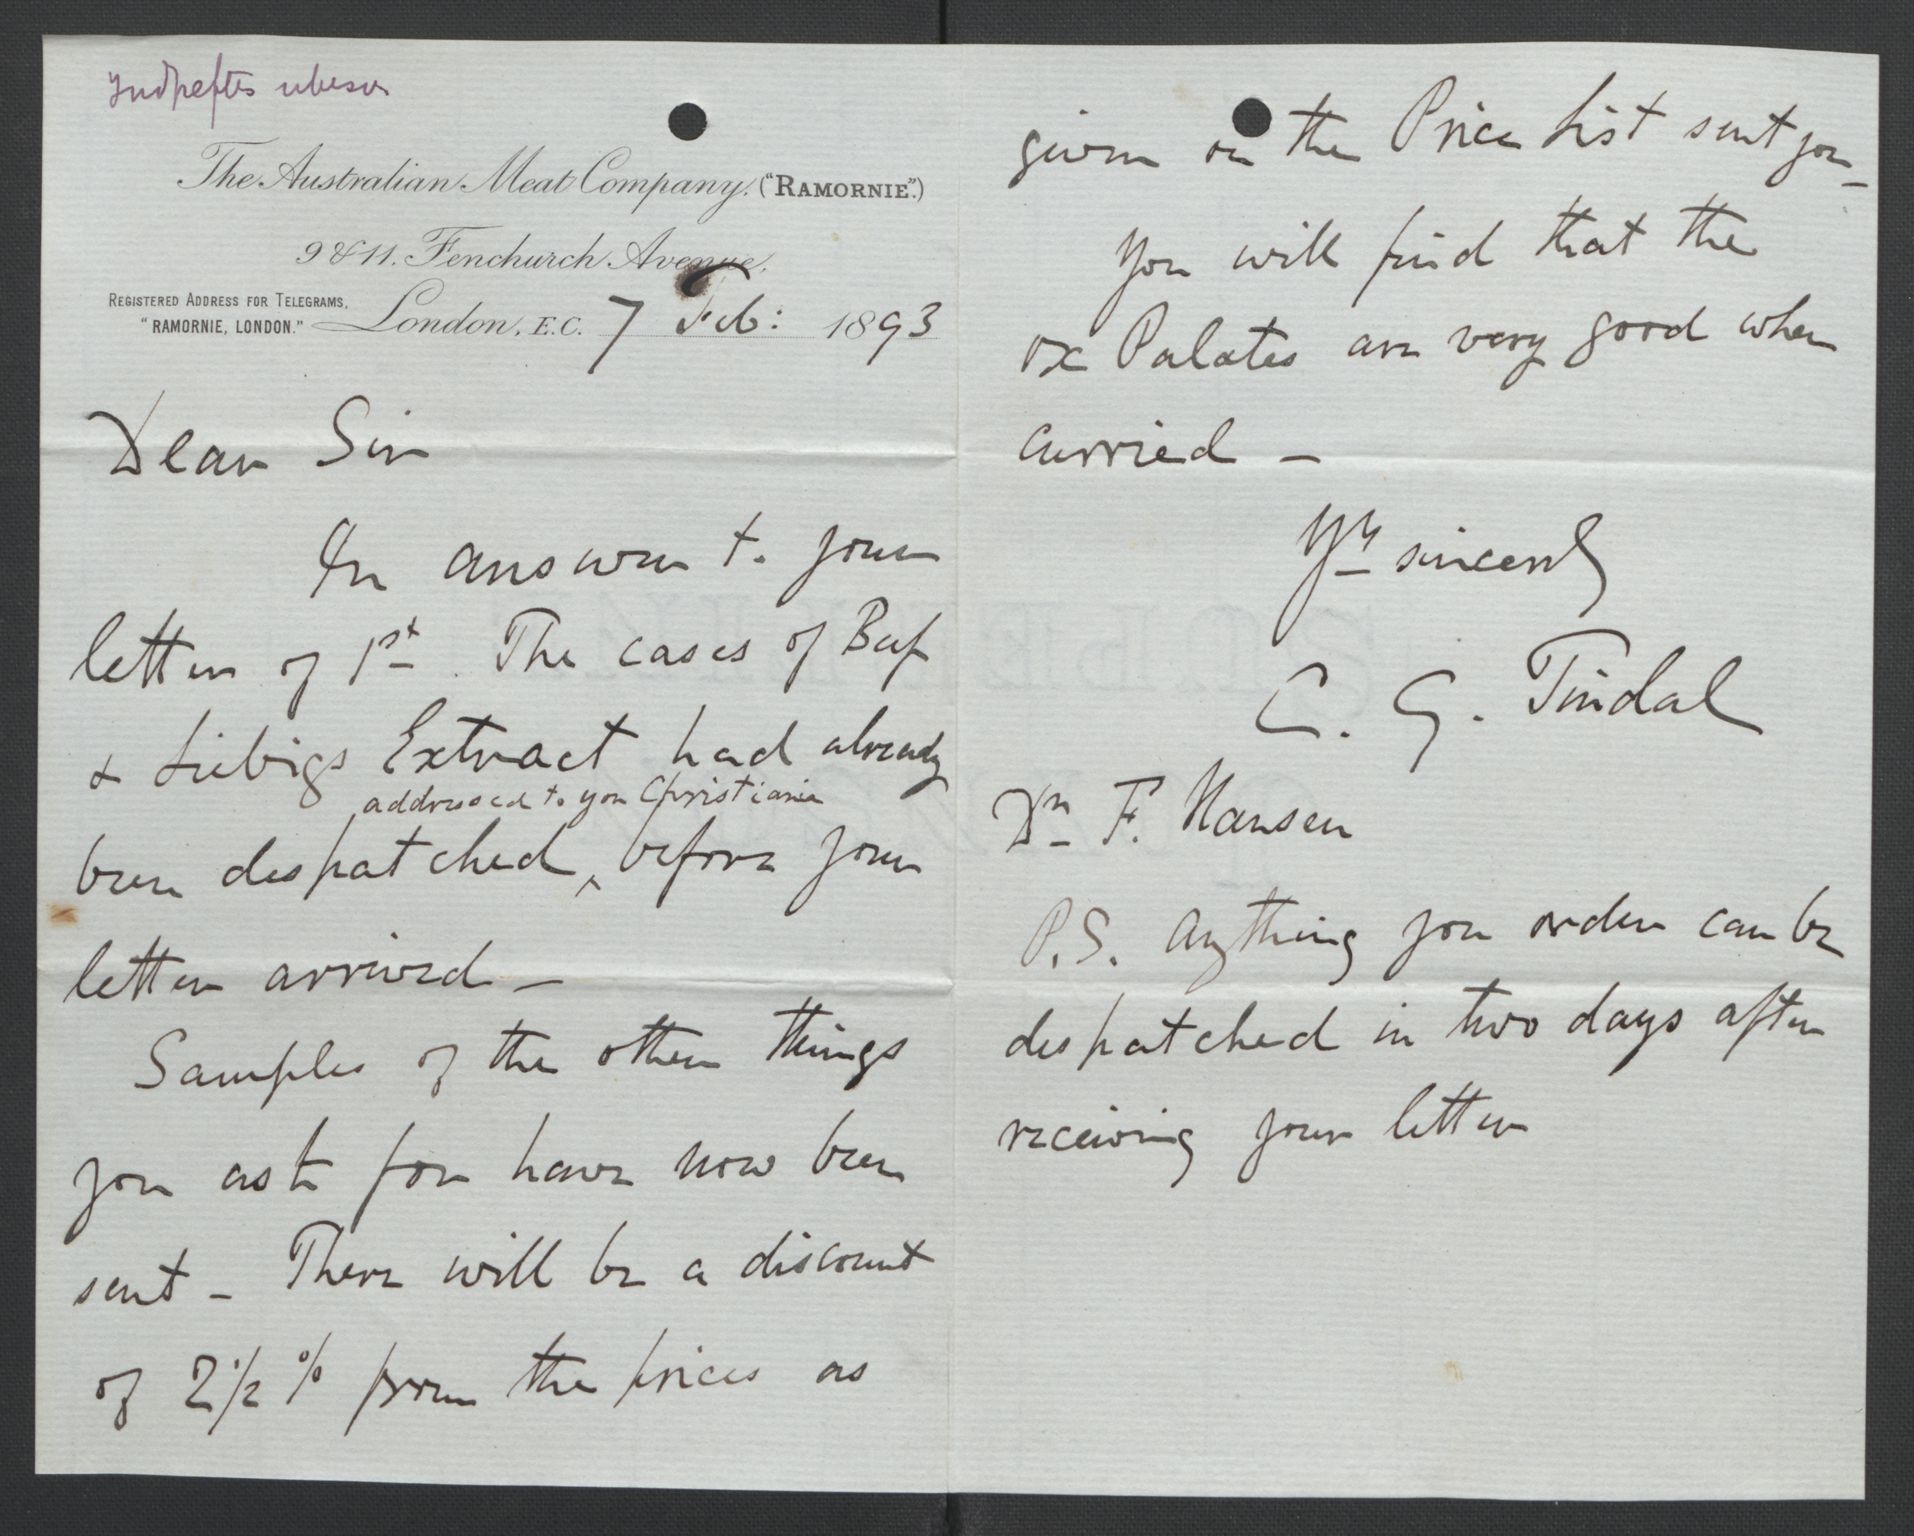 The Australian Meat Company. ("RAMORNIE".)
9 & 11. Fenchurch Avenue,
REGISTERED ADDRESS FOR TELEGRAMS,
"RAMORNIE, LONDON."
London, E.C. 7 Feb: 1893
Dear Sir
In answer to your
letter of 1st. The cases of Beef
& Liebigs Extract had already
addressed to you Christiania
been despatched ^ before your
letter arrived –
Samples of the other things
you ask for have now been
sent – There will be a discount
of 2 1/2 % from the prices as
given on the Price List sent you –
You will find that the
ox Palates are very good when
curried –
Yrs sincerely
C. G. Tindal
Dr F. Nansen
P.S. Anything you order can be
despatched in two days after
receiving your letter